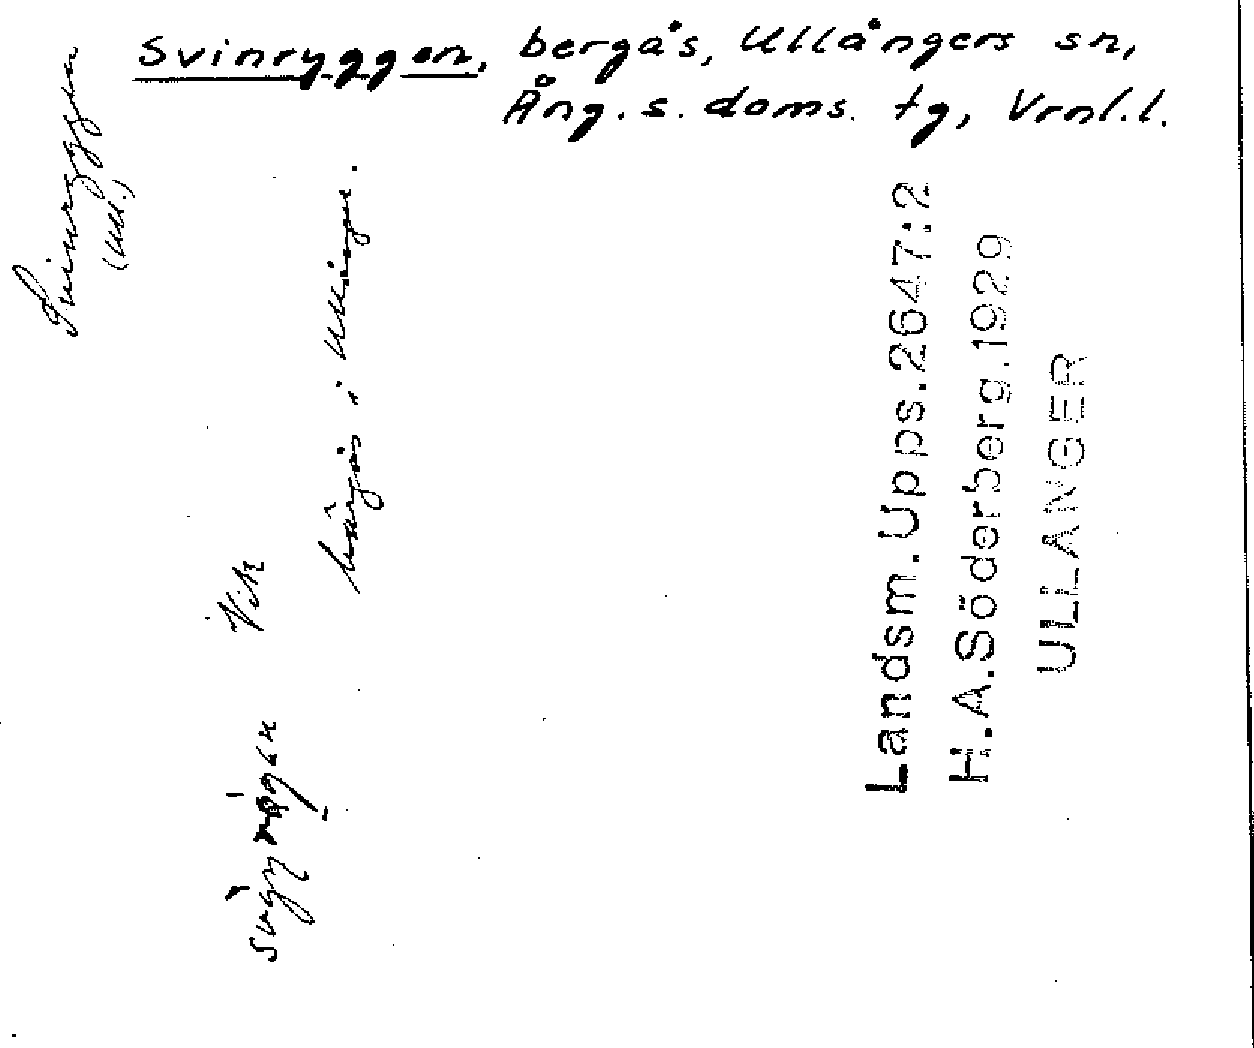 Svinryggen, bergås, Ullångers sn,
Ång. s. doms. tg, Vrnl.l.
Svinryggen
(Ull.)
Vik
bärgås i Ullånger.
Landsm. Upps. 2647:2
H.A.Söderberg.1929
ULLÅNGER